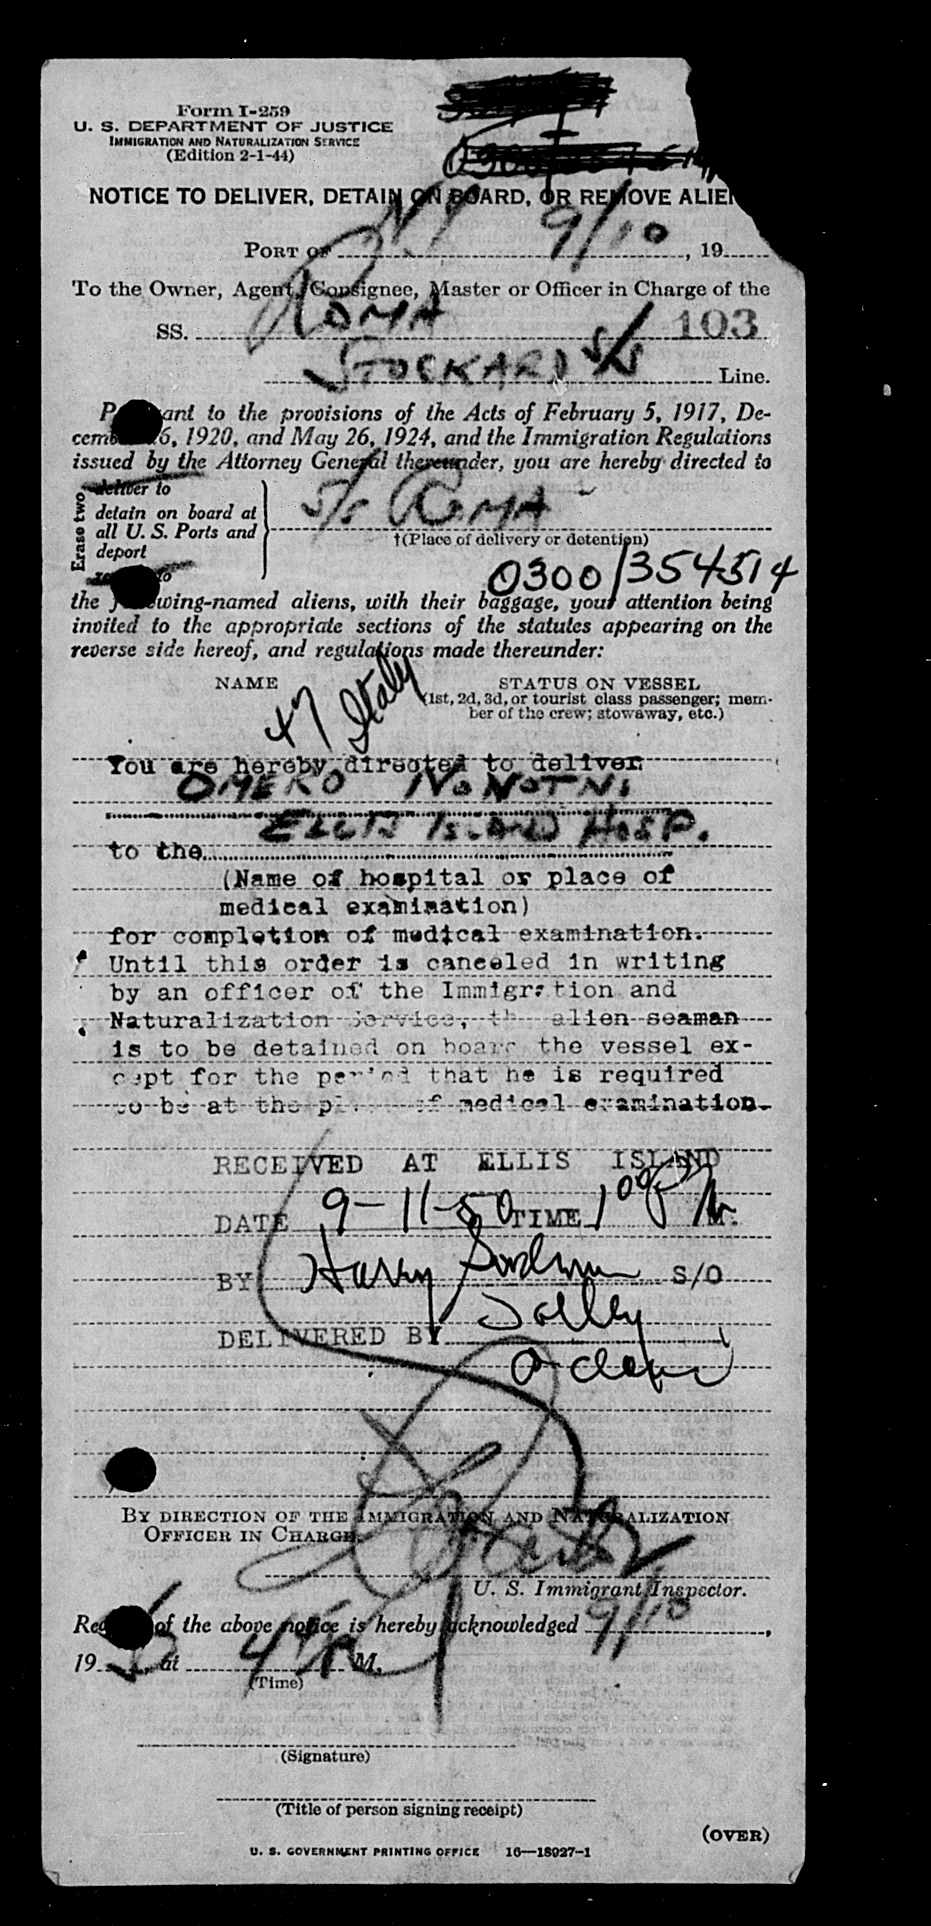 Form I-259
U. S. DEPARTMENT OF JUSTICE
IMMIGRATION AND NATURALIZATION SERVICE
(Edition 2-1-44)
NOTICE TO DELIVER, DETAIN ON BOARD, OR REMOVE ALIEN
PORT OF NY 9/10, 19
To the Owner, Agent, Consignee, Master or Officer in Charge of the
SS. ROMA 103
STOCKARD S/S Line.
Pursuant to the provisions of the Acts of February 5, 1917, De-
cember 26, 1920, and May 26, 1924, and the Immigration Regulations
issued by the Attorney General thereunder, you are hereby directed to
Erase two
deliver to
detain on board at
all U. S. Ports and
deport
to
S/S ROMA
†(Place of delivery or detention)
0300/354514
the following-named aliens, with their baggage, your attention being
invited to the appropriate sections of the statutes appearing on the
reverse side hereof, and regulations made thereunder:
NAME STATUS ON VESSEL
(1st, 2d, 3d, or tourist class passenger; mem-
ber of the crew; stowaway, etc.)
47 Italy
You are hereby directed to deliver
OMERO NONOTNI
ELLIS ISLAND HOSP.
to the
(Name of hospital or place of
medical examination)
for completion of medical examination.
Until this order is canceled in writing
by an officer of the Immigration and
Naturalization Service, the alien seaman
is to be detained on board the vessel ex-
cept for the period that he is required
to be at the place of medical examination.
RECEIVED AT ELLIS ISLAND
DATE 9-11-50 TIME 1 00 P M.
BY Harry S/O
DELIVERED BY
BY DIRECTION OF THE IMMIGRATION AND NATURALIZATION
OFFICER IN CHARGE.
U. S. Immigrant Inspector.
Receipt of the above notice is hereby acknowledged 9/10,
19 at 4 45 P M.
(Time)
(Signature)
(Title of person signing receipt)
(OVER)
U. S. GOVERNMENT PRINTING OFFICE 16—18927-1